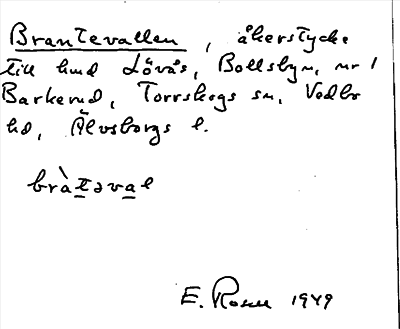 Brantevallen, åkerstycke
till hmd Lövås, Bollsbyn, nr 1
Barkerud, Torrskogs sn, Vedbo
hd, Älvsborgs l.
bràtəval
E. Rosell 1949